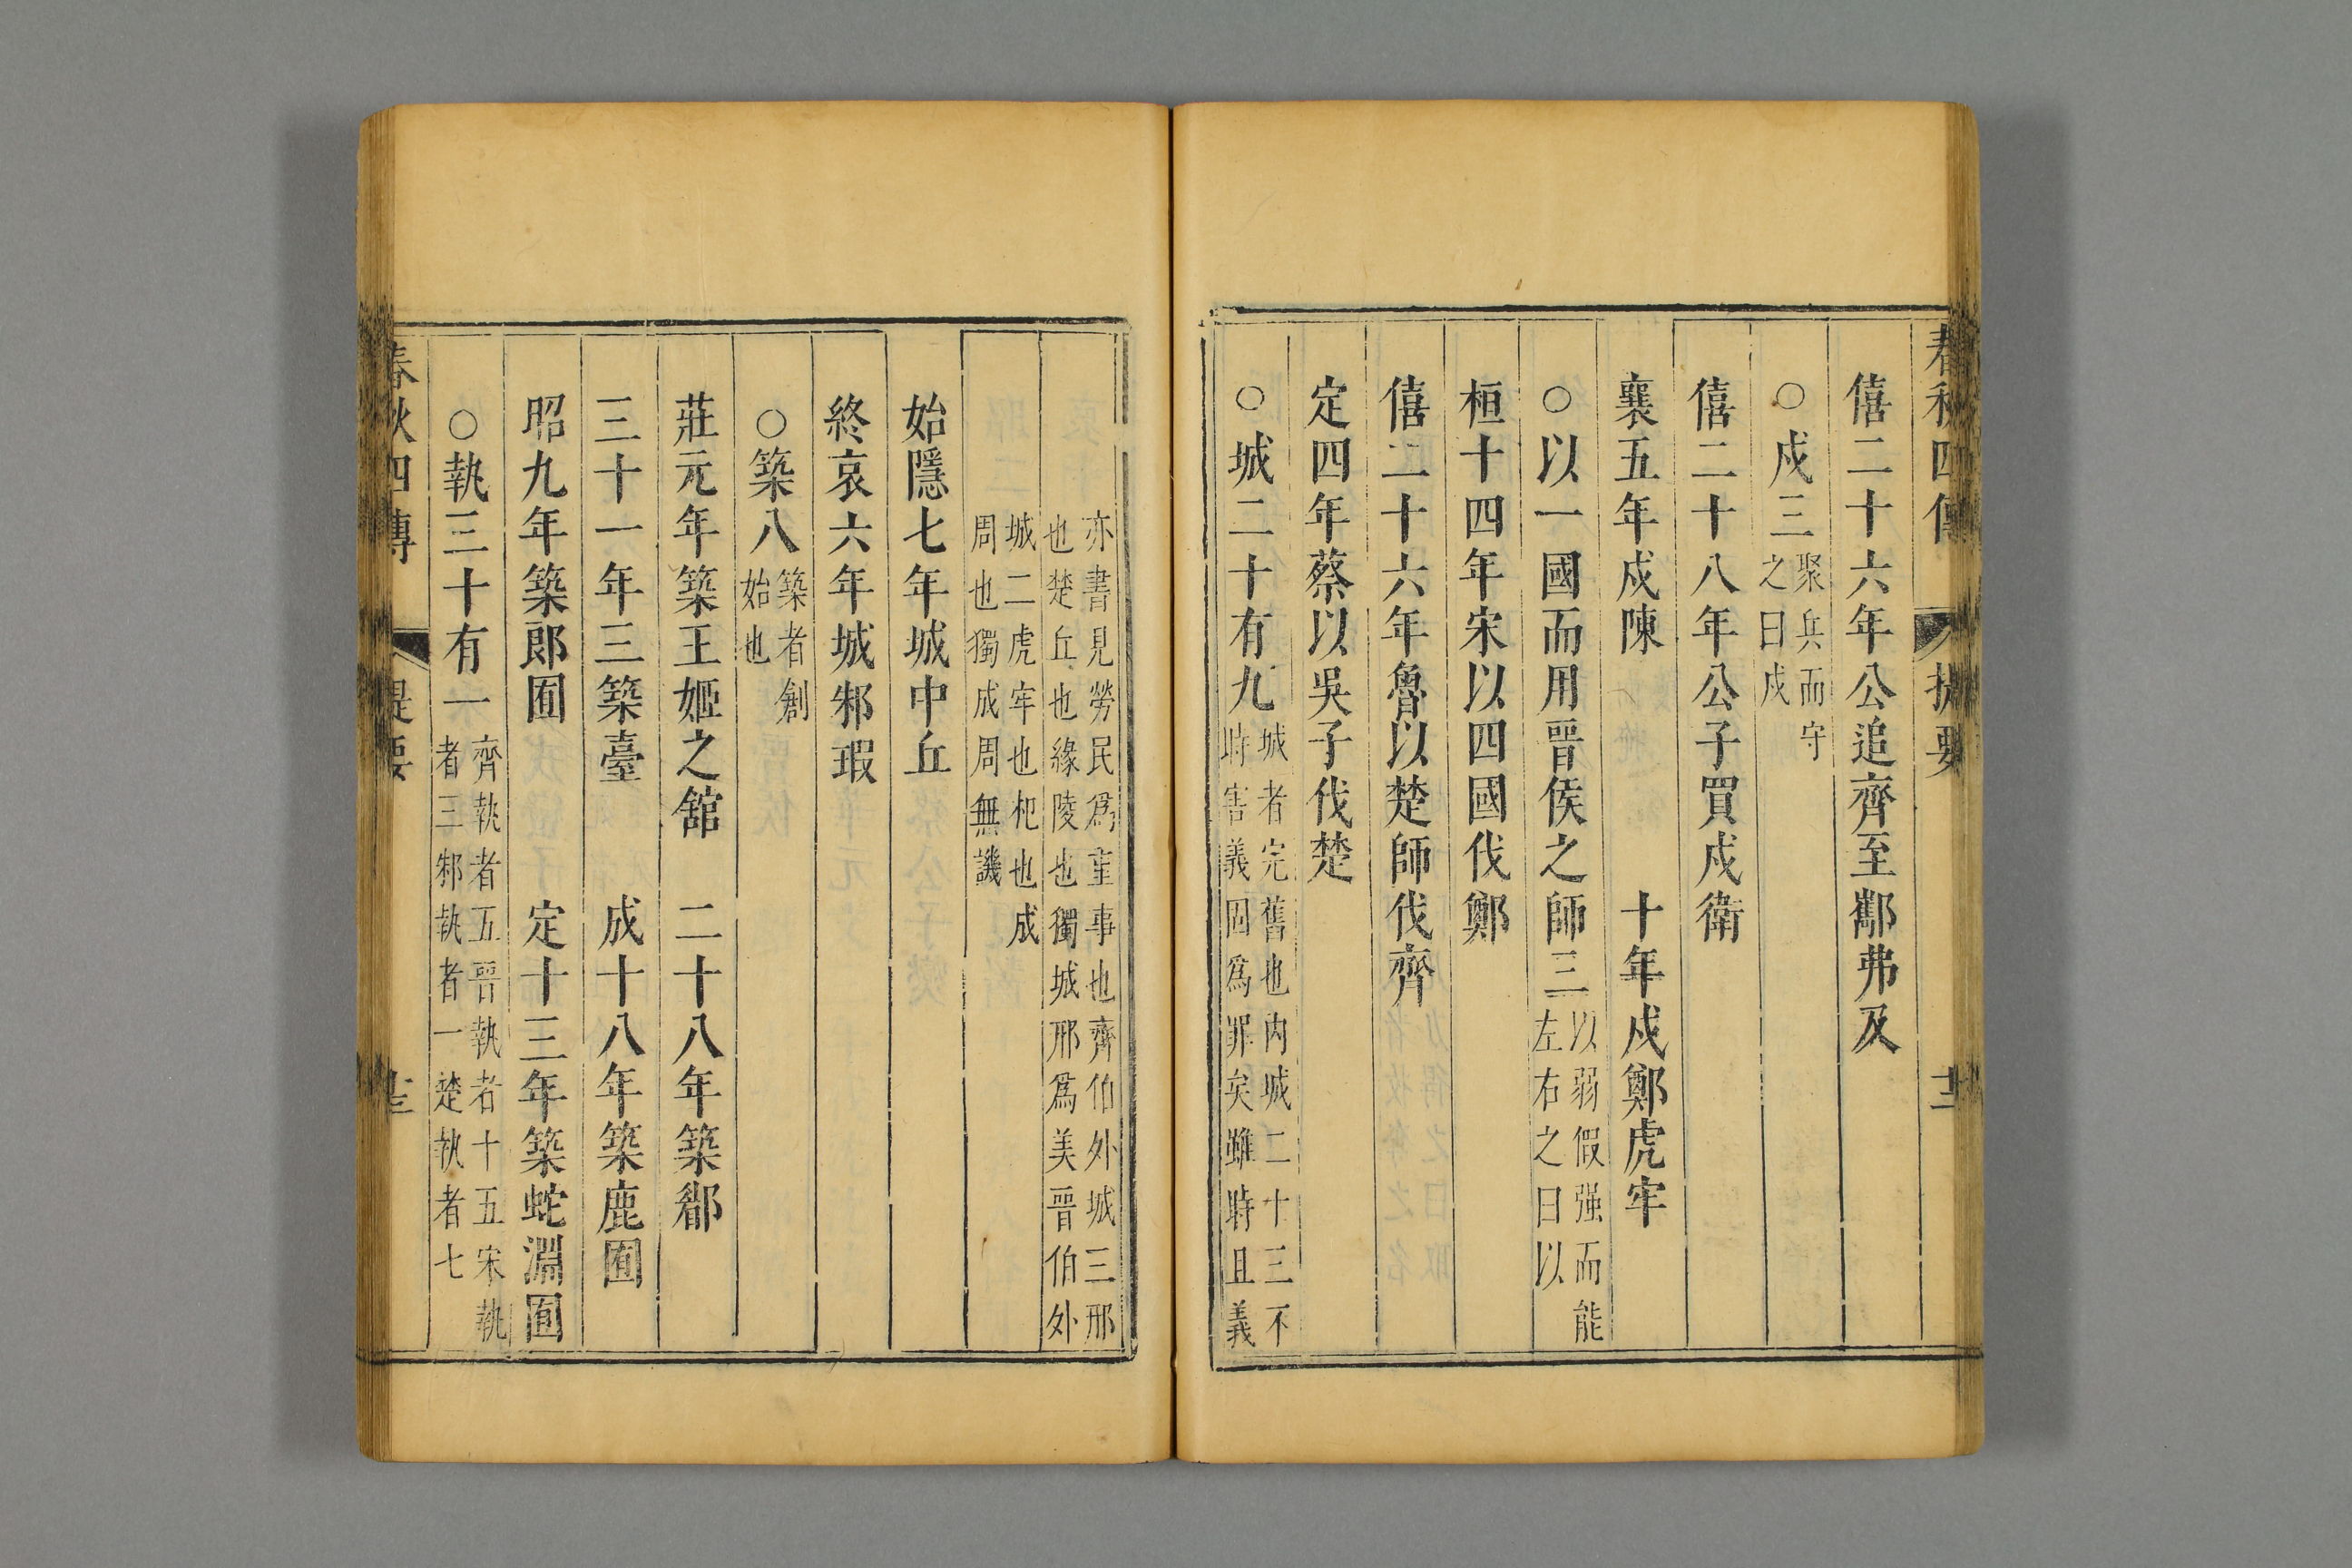 春秋四傳 提要 十二
僖二十六年公追齊至酅弗及
○戍三聚兵而守之曰戍
僖二十八年公子買戍衛
襄五年戍陳 十年戍鄭虎牢
○以一國而用晉侯之師三以弱假强而能左右之曰以
桓十四年宋以四國伐鄭
僖二十六年魯以楚師伐齊
定四年蔡以吳子伐楚
○城二十有九城者完舊也內城二十三不時害義固爲罪矣雖時且義
亦書見勞民爲重事也齊伯外城三邢也楚丘也緣陵也獨城邢爲美晉伯外
城二虎牢也杞也成周也獨成周無譏
始隱七年城中丘
終哀六年城邾瑕
○築八築者創始也
莊元年築王姬之舘 二十八年築郿
三十一年三築臺 成十八年築鹿囿
昭九年築郎囿 定十三年築蛇淵囿
○執三十有一齊執者五晉執者十五宋執者三邾執者一楚執者七
春秋四傳 提要 十三